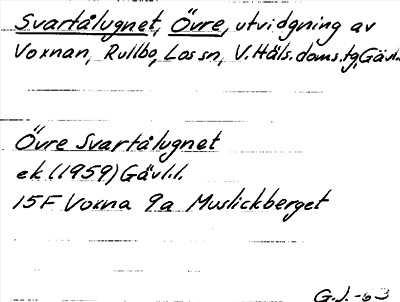 Svartålugnet, Övre, utvidgning av
Voxnan, Rullbo, Los sn, V. Häls. doms. tg, Gävl.
Övre Svartålugnet
ek. (1959) Gävl. l.
15F Voxna 9a Muslickberget
G.J. -63